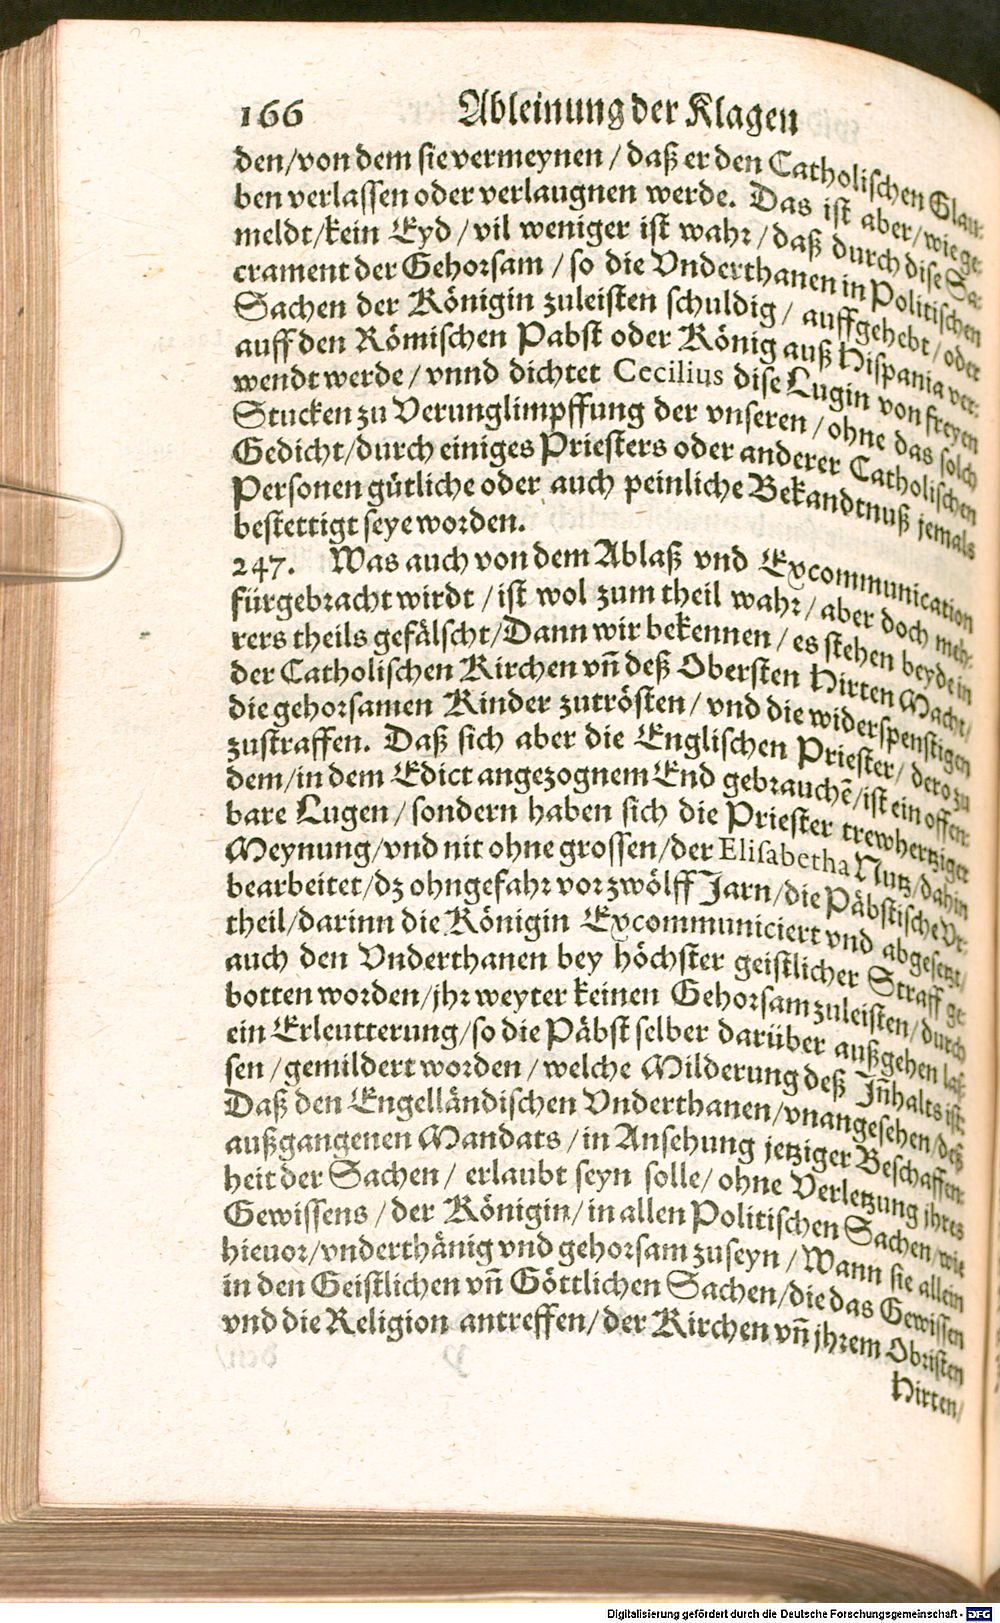 166 Ableinung der Klagen
den/von dem sie vermeynen/ daß er den Catholischen Glau-
ben verlassen oder verlaugnen werde. Das ist aber/ wie ge-
meldt/kein Eyd/ vil weniger ist wahr/ daß durch dise Sa-
crament der Gehorsam/ so die Vnderthanen in Politischen
Sachen der Königin zuleisten schuldig/ auffgehebt/ oder
auff den Römischen Pabst oder König auß Hispania ver-
wendt werde/ vnnd dichtet Cecilius dise Lugin von freyen
Stucken zu Verunglimpffung der vnseren/ ohne das solch
Gedicht/durch einiges Priesters oder anderer Catholischen
Personen gütliche oder auch peinliche Bekandtnuß jemals
bestettigt seye worden.
247. Was auch von dem Ablaß vnd Excommunication
fürgebracht wirdt/ ist wol zum theil wahr/ aber doch meh-
rers theils gefälscht/Dann wir bekennen/ es stehen beyde in
der Catholischen Kirchen vñ deß Obersten Hirten Macht/
die gehorsamen Kinder zutrösten/ vnd die widerspenstigen
zustraffen. Daß sich aber die Englischen Priester/ dero zu
dem/in dem Edict angezognem End gebrauchẽ/ist ein offen-
bare Lugen/ sondern haben sich die Priester trewhertziger
Meynung/vnd nit ohne grossen/der Elisabetha Nutz/dahin
bearbeitet/dz ohngefahr vor zwölff Jarn/die Päbstische Vr-
theil/darinn die Königin Excommuniciert vnd abgesetzt/
auch den Vnderthanen bey höchster geistlicher Straff ge-
botten worden/jhr weyter keinen Gehorsam zuleisten/durch
ein Erleutterung/so die Päbst selber darüber außgehen las-
sen/gemildert worden/welche Milderung deß Jñhalts ist:
Daß den Engelländischen Vnderthanen/vnangesehen/deß
außgangenen Mandats/in Ansehung jetziger Beschaffen-
heit der Sachen/ erlaubt seyn solle/ ohne Verletzung jhres
Gewissens/der Königin/in allen Politischen Sachen/wie
hieuor/vnderthänig vnd gehorsam zuseyn/Wann sie allein
in den Geistlichen vñ Göttlichen Sachen/die das Gewissen
vnd die Religion antreffen/der Kirchen vñ jhrem Obristen
Hirten/
Digitalisierung gefördert durch die Deutsche Forschungsgemeinschaft - DFG